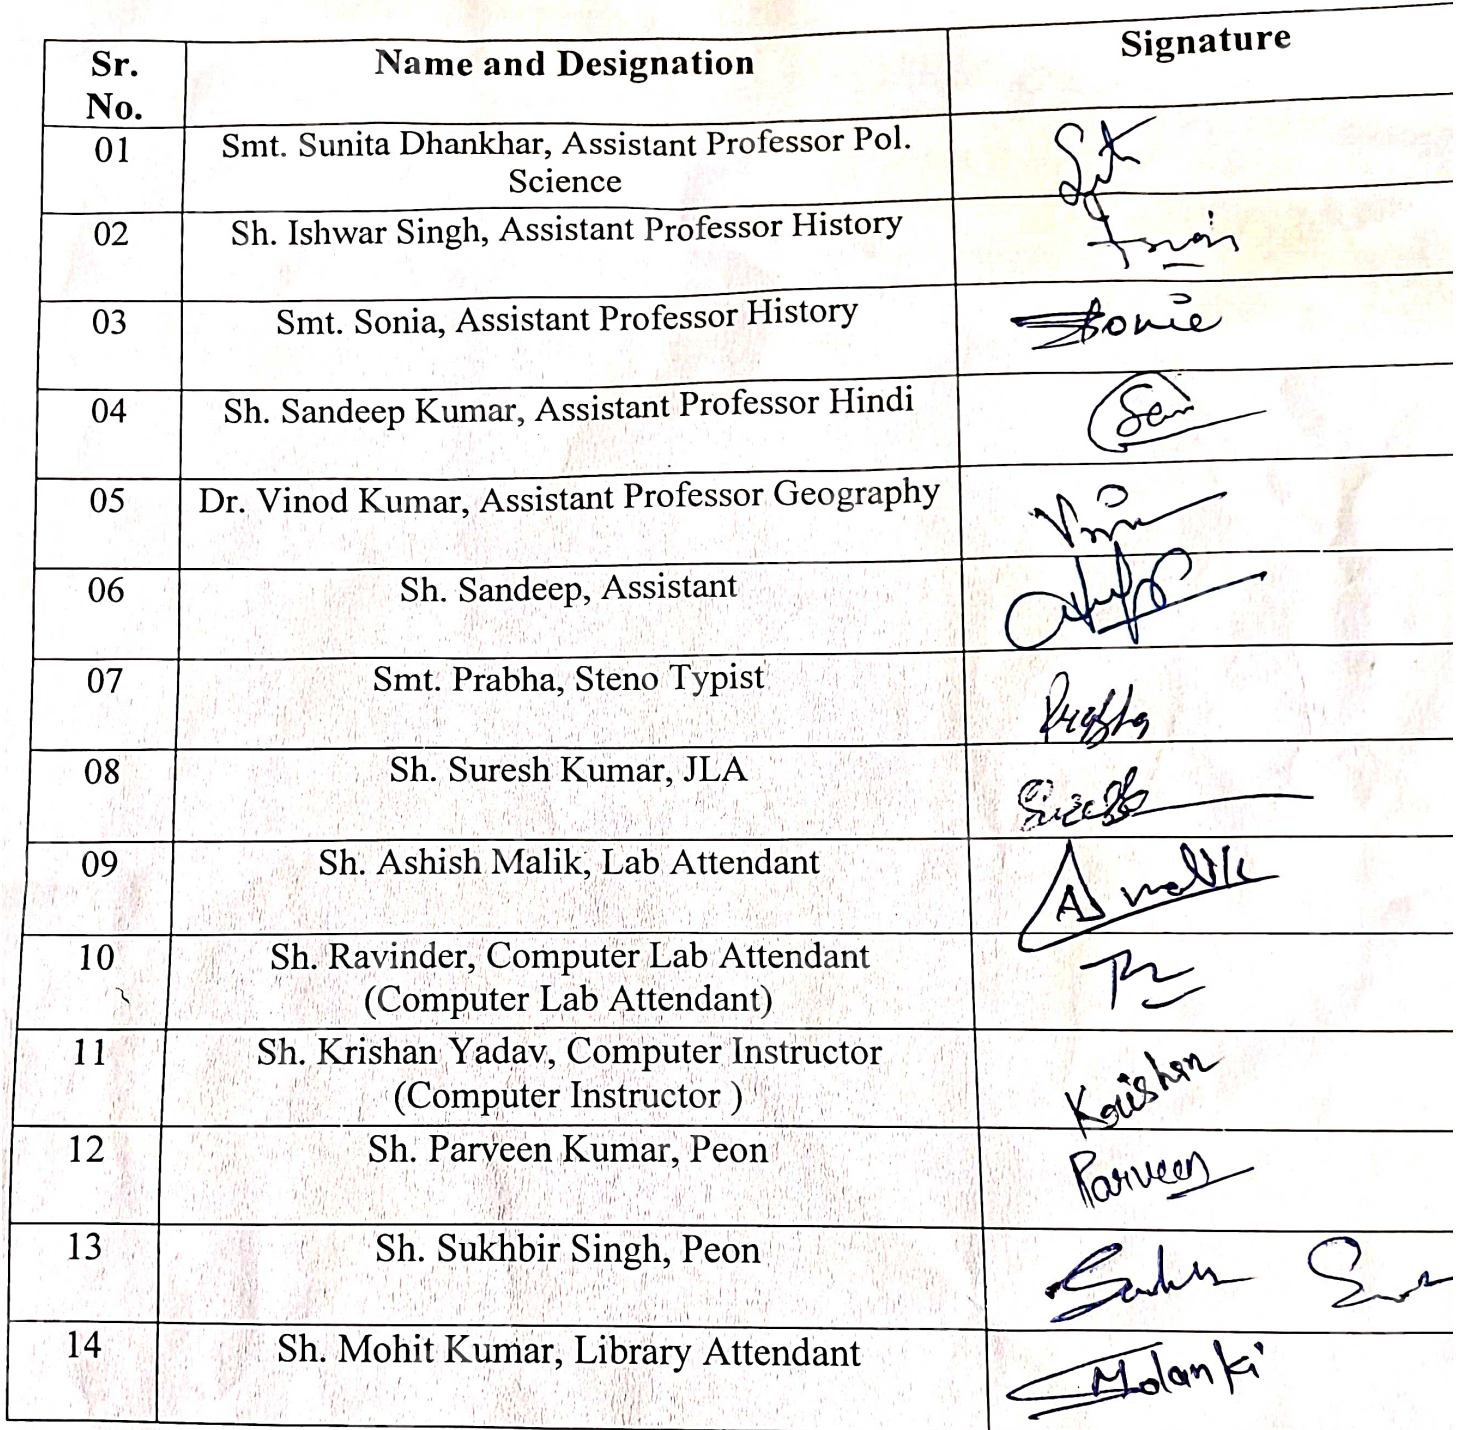 Sr. No. Name and Designation Signature
01 Smt. Sunita Dhankhar, Assistant Professor Pol.
Science
02 Sh. Ishwar Singh, Assistant Professor History
03 Smt. Sonia, Assistant Professor History Sonia
04 Sh. Sandeep Kumar, Assistant Professor Hindi
05 Dr. Vinod Kumar, Assistant Professor Geography
06 Sh. Sandeep, Assistant
07 Smt. Prabha, Steno Typist Prabha
08 Sh. Suresh Kumar, JLA
09 Sh. Ashish Malik, Lab Attendant A Malik
10 Sh. Ravinder, Computer Lab Attendant
(Computer Lab Attendant)
11 Sh. Krishan Yadav, Computer Instructor
(Computer Instructor ) Krishan
12 Sh. Parveen Kumar, Peon Parveen
13 Sh. Sukhbir Singh, Peon
14 Sh. Mohit Kumar, Library Attendant